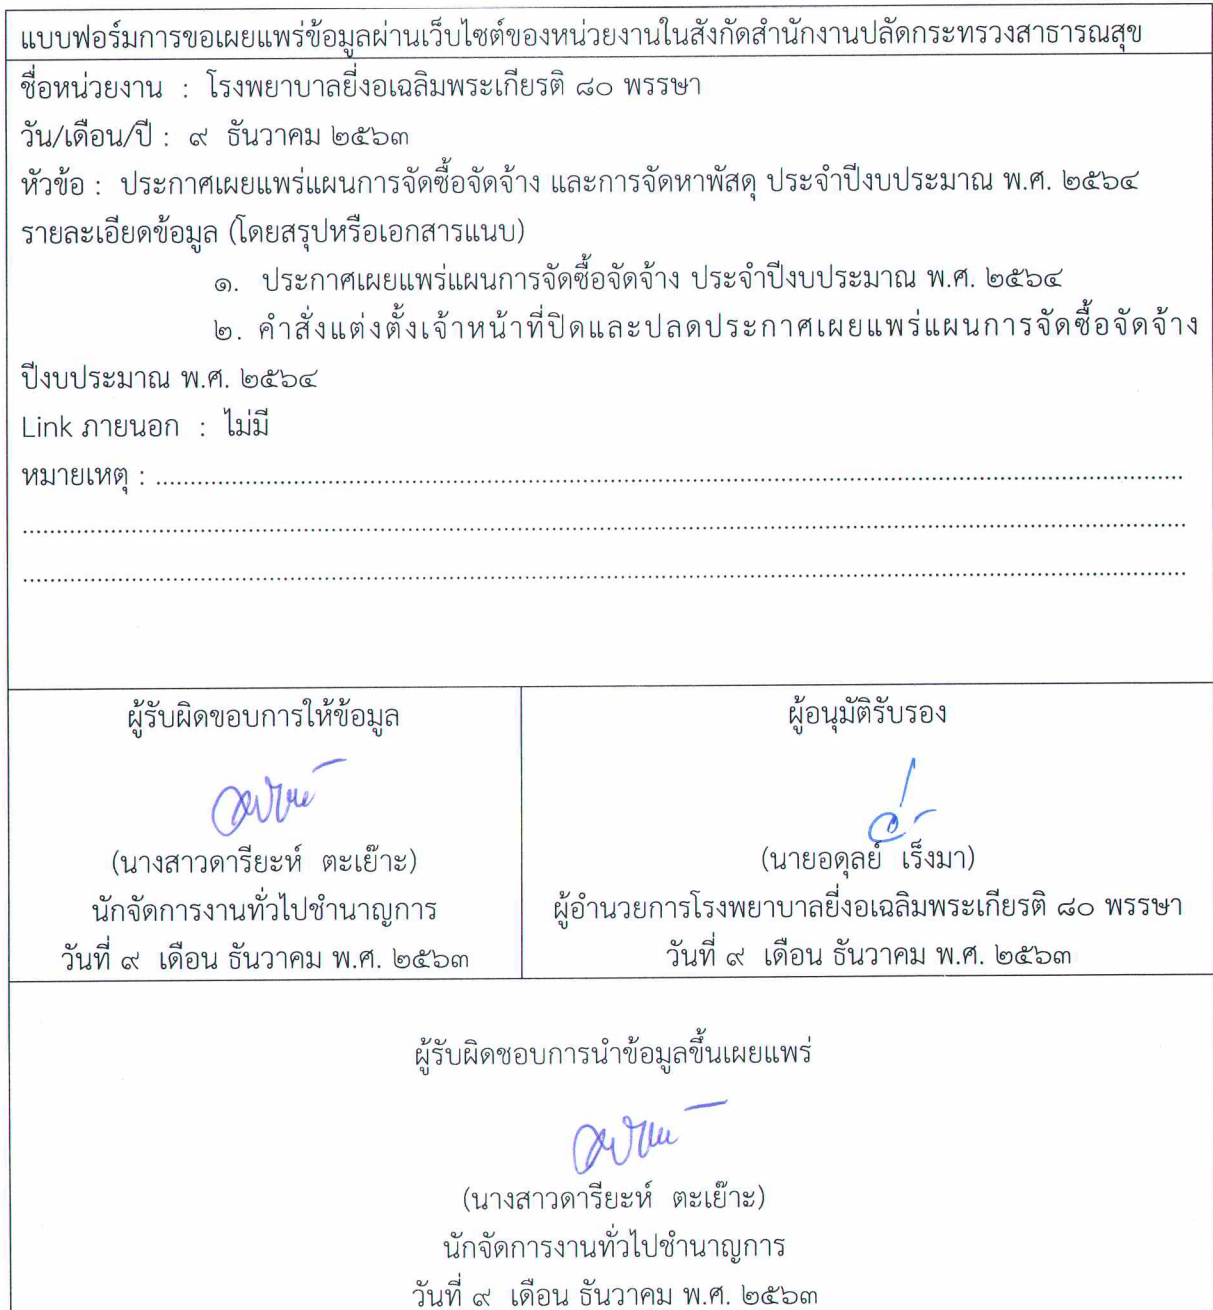 แบบฟอร์มการขอเผยแพร่ข้อมูลผ่านเว็บไซต์ของหน่วยงานในสังกัดสำนักงานปลัดกระทรวงสาธารณสุข
ชื่อหน่วยงาน : โรงพยาบาลยี่งอเฉลิมพระเกียรติ ๘๐ พรรษา
วัน/เดือน/ปี : ๙ ธันวาคม ๒๕๖๓
หัวข้อ : ประกาศเผยแพร่แผนการจัดซื้อจัดจ้าง และการจัดหาพัสดุ ประจำปีงบประมาณ พ.ศ. ๒๕๖๔
รายละเอียดข้อมูล (โดยสรุปหรือเอกสารแนบ)
๑. ประกาศเผยแพร่แผนการจัดซื้อจัดจ้าง ประจำปีงบประมาณ พ.ศ. ๒๕๖๔
๒. คำสั่งแต่งตั้งเจ้าหน้าที่ปิดและปลดประกาศเผยแพร่แผนการจัดซื้อจัดจ้าง
ปีงบประมาณ พ.ศ. ๒๕๖๔
Link ภายนอก : ไม่มี
หมายเหตุ : ........................................................................
........................................................................
........................................................................
ผู้รับผิดขอบการให้ข้อมูล
(นางสาวดารียะห์ ตะเย๊าะ)
นักจัดการงานทั่วไปชำนาญการ
วันที่ ๙ เดือน ธันวาคม พ.ศ. ๒๕๖๓
ผู้อนุมัติรับรอง
(นายอดุลย์ เร็งมา)
ผู้อำนวยการโรงพยาบาลยี่งอเฉลิมพระเกียรติ ๘๐ พรรษา
วันที่ ๙ เดือน ธันวาคม พ.ศ. ๒๕๖๓
ผู้รับผิดชอบการนำข้อมูลขึ้นเผยแพร่
(นางสาวดารียะห์ ตะเย๊าะ)
นักจัดการงานทั่วไปชำนาญการ
วันที่ ๙ เดือน ธันวาคม พ.ศ. ๒๕๖๓